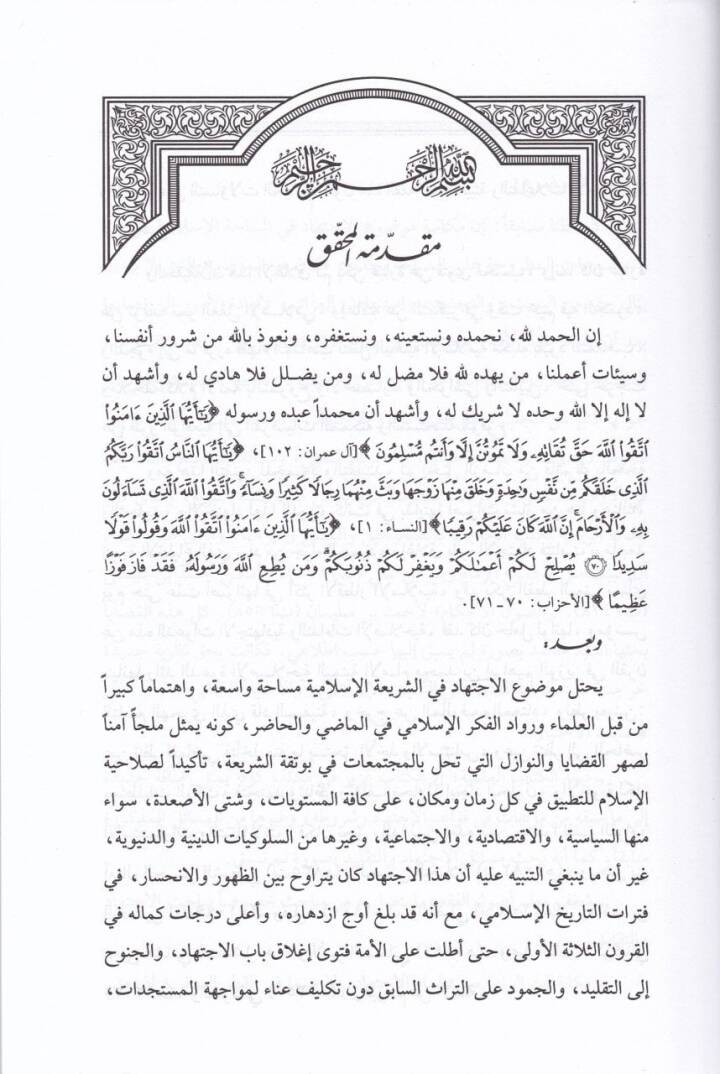 بسم الله الرحمن الرحيم
مقدمة المحقق
إن الحمد لله، نحمده ونستعينه، ونستغفره، ونعوذ بالله من شرور أنفسنا،
وسيئات أعملنا، من يهده لله فلا مضل له، ومن يضلل فلا هادي له، وأشهد أن
لا إله إلا الله وحده لا شريك له، وأشهد أن محمداً عبده ورسوله ﴿يَٰٓأَيُّهَا ٱلَّذِينَ ءَامَنُوا۟
ٱتَّقُوا۟ ٱللَّهَ حَقَّ تُقَاتِهِۦ وَلَا تَمُوتُنَّ إِلَّا وَأَنتُم مُّسْلِمُونَ﴾[آل عمران: ١٠٢]، ﴿يَٰٓأَيُّهَا ٱلنَّاسُ ٱتَّقُوا۟ رَبَّكُمُ
ٱلَّذِى خَلَقَكُم مِّن نَّفْسٍ وَٰحِدَةٍ وَخَلَقَ مِنْهَا زَوْجَهَا وَبَثَّ مِنْهُمَا رِجَالًا كَثِيرًا وَنِسَآءً ۚ وَٱتَّقُوا۟ ٱللَّهَ ٱلَّذِى تَسَآءَلُونَ
بِهِۦ وَٱلْأَرْحَامَ ۚ إِنَّ ٱللَّهَ كَانَ عَلَيْكُمْ رَقِيبًا﴾[النساء: ١]، ﴿يَٰٓأَيُّهَا ٱلَّذِينَ ءَامَنُوا۟ ٱتَّقُوا۟ ٱللَّهَ وَقُولُوا۟ قَوْلًا
سَدِيدًا ٧٠ يُصْلِحْ لَكُمْ أَعْمَٰلَكُمْ وَيَغْفِرْ لَكُمْ ذُنُوبَكُمْ ۗ وَمَن يُطِعِ ٱللَّهَ وَرَسُولَهُۥ فَقَدْ فَازَ فَوْزًا
عَظِيمًا﴾[الأحزاب: ٧٠ـ٧١].
وبعد:
يحتل موضوع الاجتهاد في الشريعة الإسلامية مساحة واسعة، واهتماماً كبيراً
من قبل العلماء ورواد الفكر الإسلامي في الماضي والحاضر، كونه يمثل ملجأً آمناً
لصهر القضايا والنوازل التي تحل بالمجتمعات في بوتقة الشريعة، تأكيداً لصلاحية
الإسلام للتطبيق في كل زمان ومكان، على كافة المستويات، وشتى الأصعدة، سواء
منها السياسية، والاقتصادية، والاجتماعية، وغيرها من السلوكيات الدينية والدنيوية،
غير أن ما ينبغي التنبيه عليه أن هذا الاجتهاد كان يتراوح بين الظهور والانحسار، في
فترات التاريخ الإسلامي، مع أنه قد بلغ أوج ازدهاره، وأعلى درجات كماله في
القرون الثلاثة الأولى، حتى أطلت على الأمة فتوى إغلاق باب الاجتهاد، والجنوح
إلى التقليد، والجمود على التراث السابق دون تكليف عناء لمواجهة المستجدات،